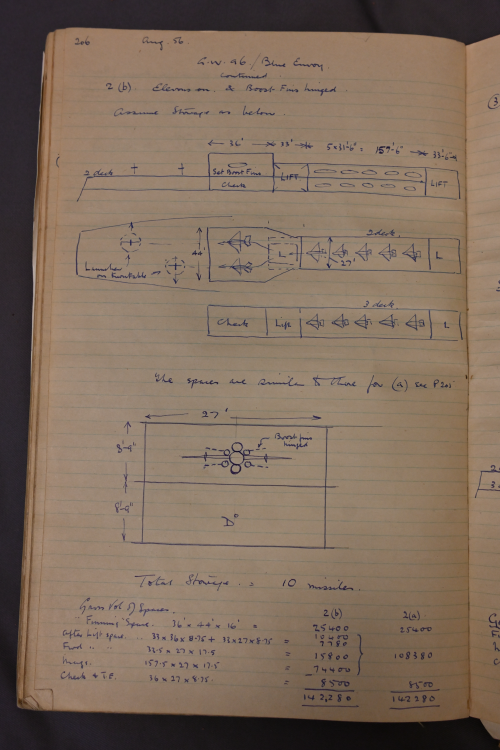 206 Aug. 56.
G.W. 96 / Blue Envoy.
continued
2 (b). Elevons on & Boost Fins hinged.
Assume Storage as below.
36' 33' 5x31'-6" = 157'-6" 33'-6"
2 deck
Set Boost Fins
Checks
LIFT
LIFT
2 deck
44'
L
27'
L
Launcher
on turntable
3 deck
Checks Lift L
The spaces are similar to those for (a) see P 205
27'
Boost fins
hinged
8'-9"
8'-9"
Do
Total Storage = 10 missiles.
Gross Vol of Spaces. 2(b) 2(a)
Finning Space. 36' x 44' x 16' = 25400 25400
After Lift space. 33 x 36 x 8.75 + 33 x 27 x 8.75 = 10400
7780
Fwd " " 33.5 x 27 x 17.5 = 15800 108380
Mags. 157.5 x 27 x 17.5 = 74400
Check & T.E. 36 x 27 x 8.75. = 8500 8500
142,280 142280